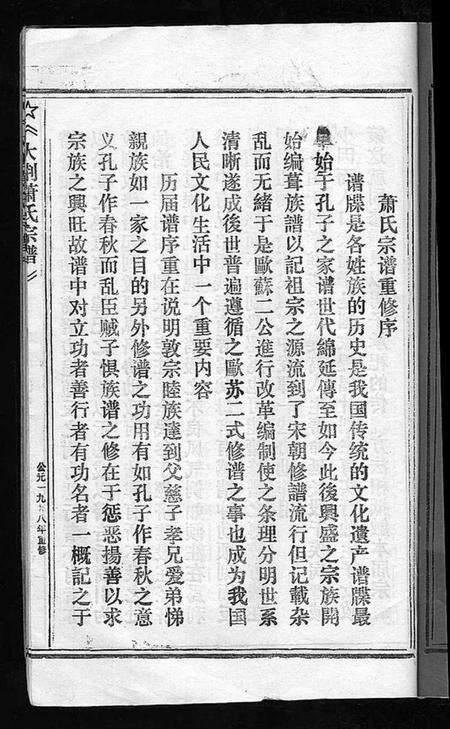 萧氏宗谱重修序
谱牒是各姓族的历史是我国传统的文化遗产谱牒最
早始于孔子之家谱世代綿延傳至如今此後興盛之宗族開
始编葺族譜以記祖宗之源流到了宋朝修譜流行但记載杂
乱而无緒于是歐蘇二公進行改革编制使之条理分明世系
清晰遂成後世普遍遵循之歐苏二式修谱之事也成为我国
人民文化生活中一个重要内容
历届谱序重在说明敦宗睦族達到父慈子孝兄爱弟悌
親族如一家之目的另外修谱之功用有如孔子作春秋之意
义孔子作春秋而乱臣贼子惧族谱之修在于惩恶揚善以求
宗族之興旺故谱中对立功者善行者有功名者一概記之于
☆《大荆萧氏宗譜》
公元一九九八年重修